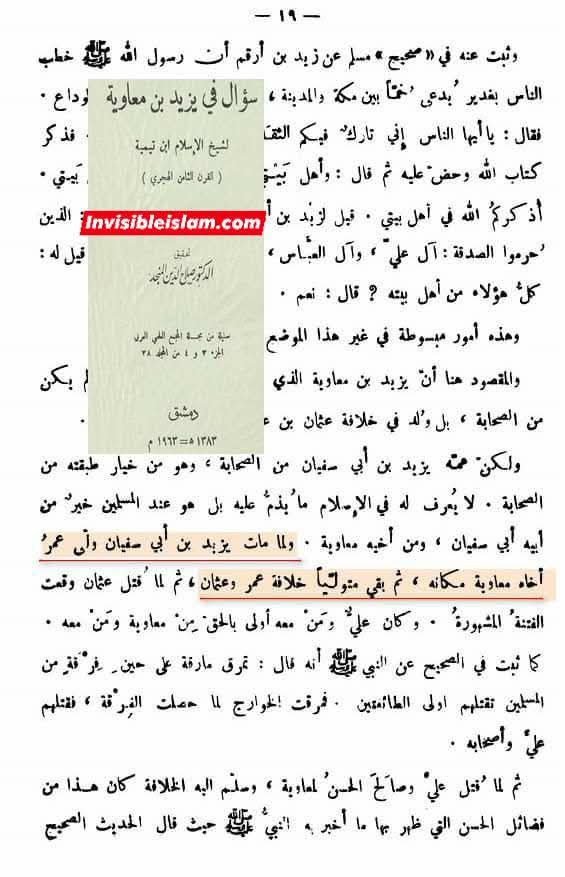 — ١٩ —
وثبت عنه في «صحيح» مسلم عن زيد بن أرقم أن رسول الله ﷺ خطب
الناس بغدير يُدعى خمّاً بين مكة والمدينة ،
فقال : يا أيها الناس إني تاركٌ فيكم الثقلـ فذكر
كتاب الله وحضّ عليه ثم قال : وأهل بَيْتي بَيتي .
أذكركمُ الله في أهل بيتي . قيل لزيد بن أر الذين
حُرموا الصدقة : آل عليّ ، وآل العبّاس ، قيل له :
كلُّ هؤلاء من أهل بيته ? قال : نعم .
وهذه أمور مبسوطة في غير هذا الموضع
والمقصود هنا أنّ يزيد بن معاوية الذي يكن
من الصحابة ، بل وُلد في خلافة عثمان بن
ولكنّ عمّه يزيد بن أبي سفيان من الصحابة ، وهو من خيار طبقته من
الصحابة . لا يُعرف له في الإسلام ما يُذمُّ عليه بل هو عند المسلمين خيرٌ من
أبيه أبي سفيان ، ومن أخيه معاوية . ولما مات يزيد بن أبي سفيان ولّى عمرُ
أخاه معاوية مكانه ، ثم بقي متولّياً خلافة عمر وعثمان ، ثم لما قُتل عثمان وقعت
الفتنةُ المشهورةُ . وكان عليٌّ ومَنْ معه أولى بالحقّ مِنْ معاوية ومَنْ معه .
كما ثبت في الصحيح عن النبي ﷺ أنه قال : تمرق مارقة على حينِ فِرْقَةٍ من
المسلمين تقتلهم أولى الطائفتين . فمرقت الخوارج لما حصلت الفِرْقة ، فقتلهم
عليٌّ وأصحابه .
ثم لما قُتل عليٌّ وصالحَ الحسنُ لمعاوية ، وسلّم اليه الخلافة كان هذا من
فضائل الحسن التي ظهر بها ما أخبر به النبيُّ ﷺ حيث قال الحديث الصحيح
سؤال في يزيد بن معاوية
لشيخ الإسلام ابن تيمية
( القرن الثامن الهجري )
Invisibleislam.com
تحقيق
الدكتور صلاح الدين المنجد
مجلة المجمع العلمي العربي
الجزء ٣ و ٤ من المجلد ٣٨
دمشق
١٣٨٣ ه = ١٩٦٣ م